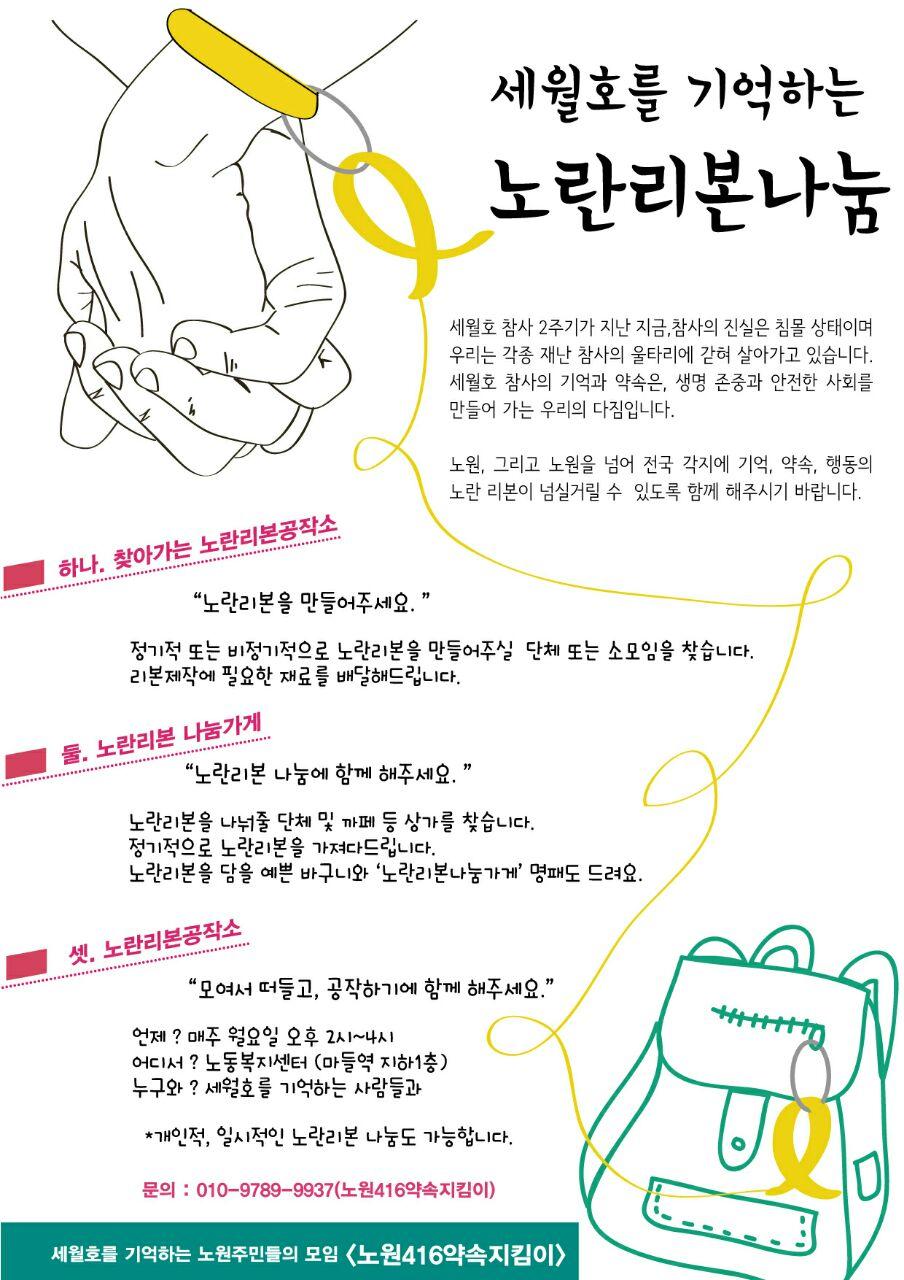 세월호를 기억하는
노란리본나눔
세월호 참사 2주기가 지난 지금,참사의 진실은 침몰 상태이며
우리는 각종 재난 참사의 울타리에 갇혀 살아가고 있습니다.
세월호 참사의 기억과 약속은, 생명 존중과 안전한 사회를
만들어 가는 우리의 다짐입니다.
노원, 그리고 노원을 넘어 전국 각지에 기억, 약속, 행동의
노란 리본이 넘실거릴 수 있도록 함께 해주시기 바랍니다.
하나. 찾아가는 노란리본공작소
“노란리본을 만들어주세요. ”
정기적 또는 비정기적으로 노란리본을 만들어주실 단체 또는 소모임을 찾습니다.
리본제작에 필요한 재료를 배달해드립니다.
둘. 노란리본 나눔가게
“노란리본 나눔에 함께 해주세요. ”
노란리본을 나눠줄 단체 및 까페 등 상가를 찾습니다.
정기적으로 노란리본을 가져다드립니다.
노란리본을 담을 예쁜 바구니와 ‘노란리본나눔가게’ 명패도 드려요.
셋. 노란리본공작소
“모여서 떠들고, 공작하기에 함께 해주세요.”
언제 ? 매주 월요일 오후 2시~4시
어디서 ? 노동복지센터 (마들역 지하1층)
누구와 ? 세월호를 기억하는 사람들과
*개인적, 일시적인 노란리본 나눔도 가능합니다.
문의 : 010-9789-9937(노원416약속지킴이)
세월호를 기억하는 노원주민들의 모임 <노원416약속지킴이>